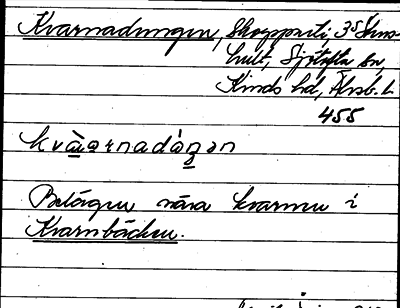 Kvarnadungen, Skogsparti, 35 Svens-
hult, Sjötofta sn,
Kinds hd, Älvsb. l.
455
kvàarnadáŋən
Belägen nära kvarnen i
Kvarnbäcken.